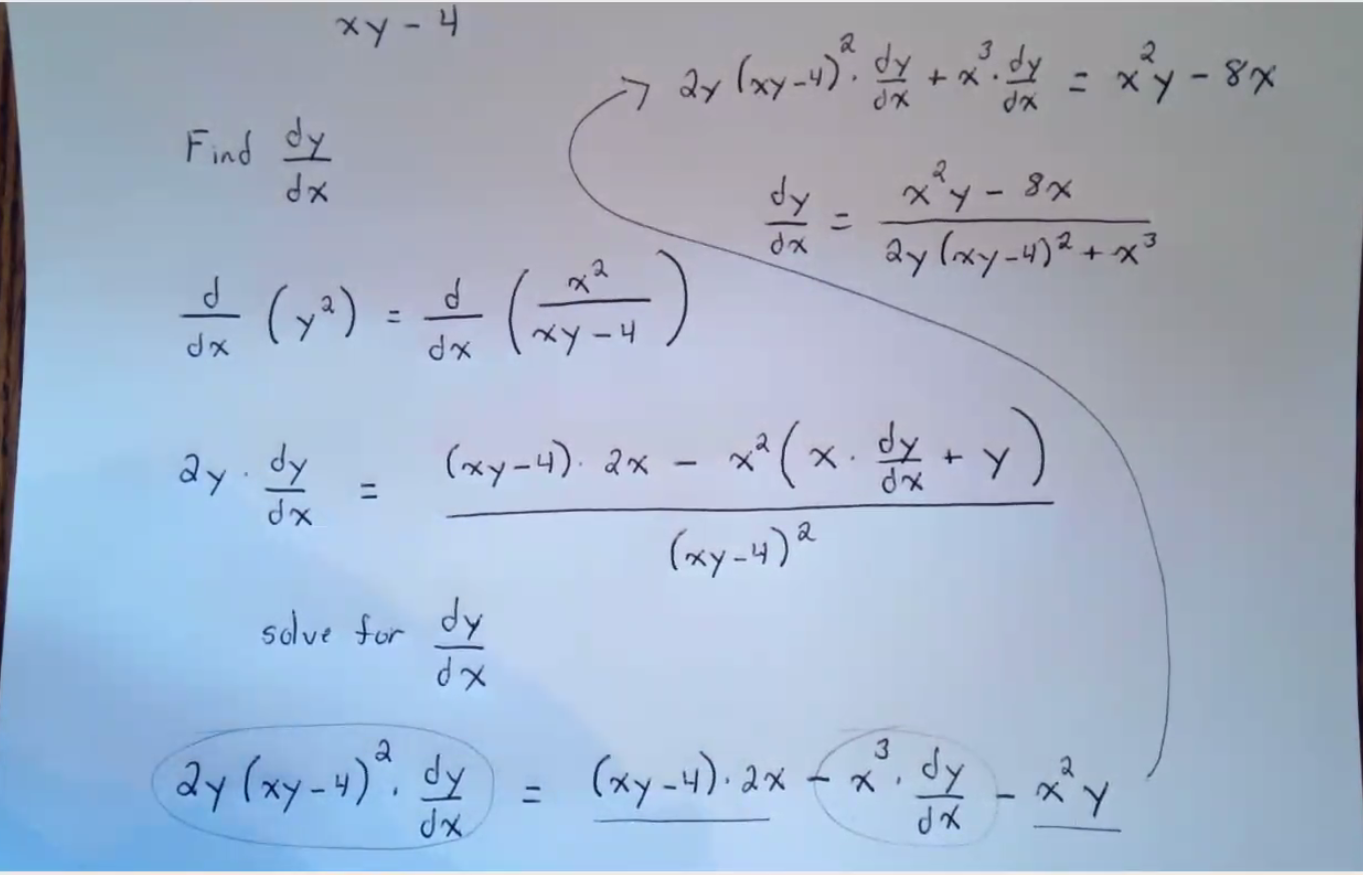 xy - 4
Find dy/dx
d/dx (y²) = d/dx (x²/(xy - 4))
2y · dy/dx = ((xy-4) · 2x - x² (x · dy/dx + y))/(xy-4)²
solve for dy/dx
2y (xy-4)² · dy/dx = (xy-4) · 2x - x³ · dy/dx - x²y
→ 2y (xy-4)² · dy/dx + x³ · dy/dx = x²y - 8x
dy/dx = (x²y - 8x)/(2y (xy-4)² + x³)